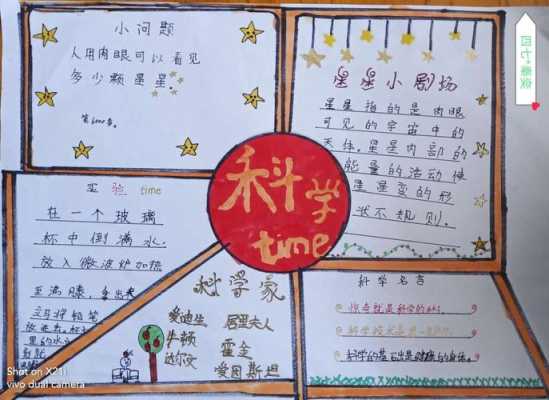 小问题
人用肉眼可以看见
多少颗星星.
星星小剧场
星星指的是肉眼
可见的宇宙中的
天体.星星内部的
能量的活动使
星星变的形
状不规则.
科学
time
实验time
在一个玻璃
杯中倒满水.
放入微波炉加热
至沸腾,拿出来
科学家
爱迪生 居里夫人
牛顿 霍金
达尔文 爱因斯坦
科学名言
惊奇就是科学的
Shot on X21i
vivo dual camera